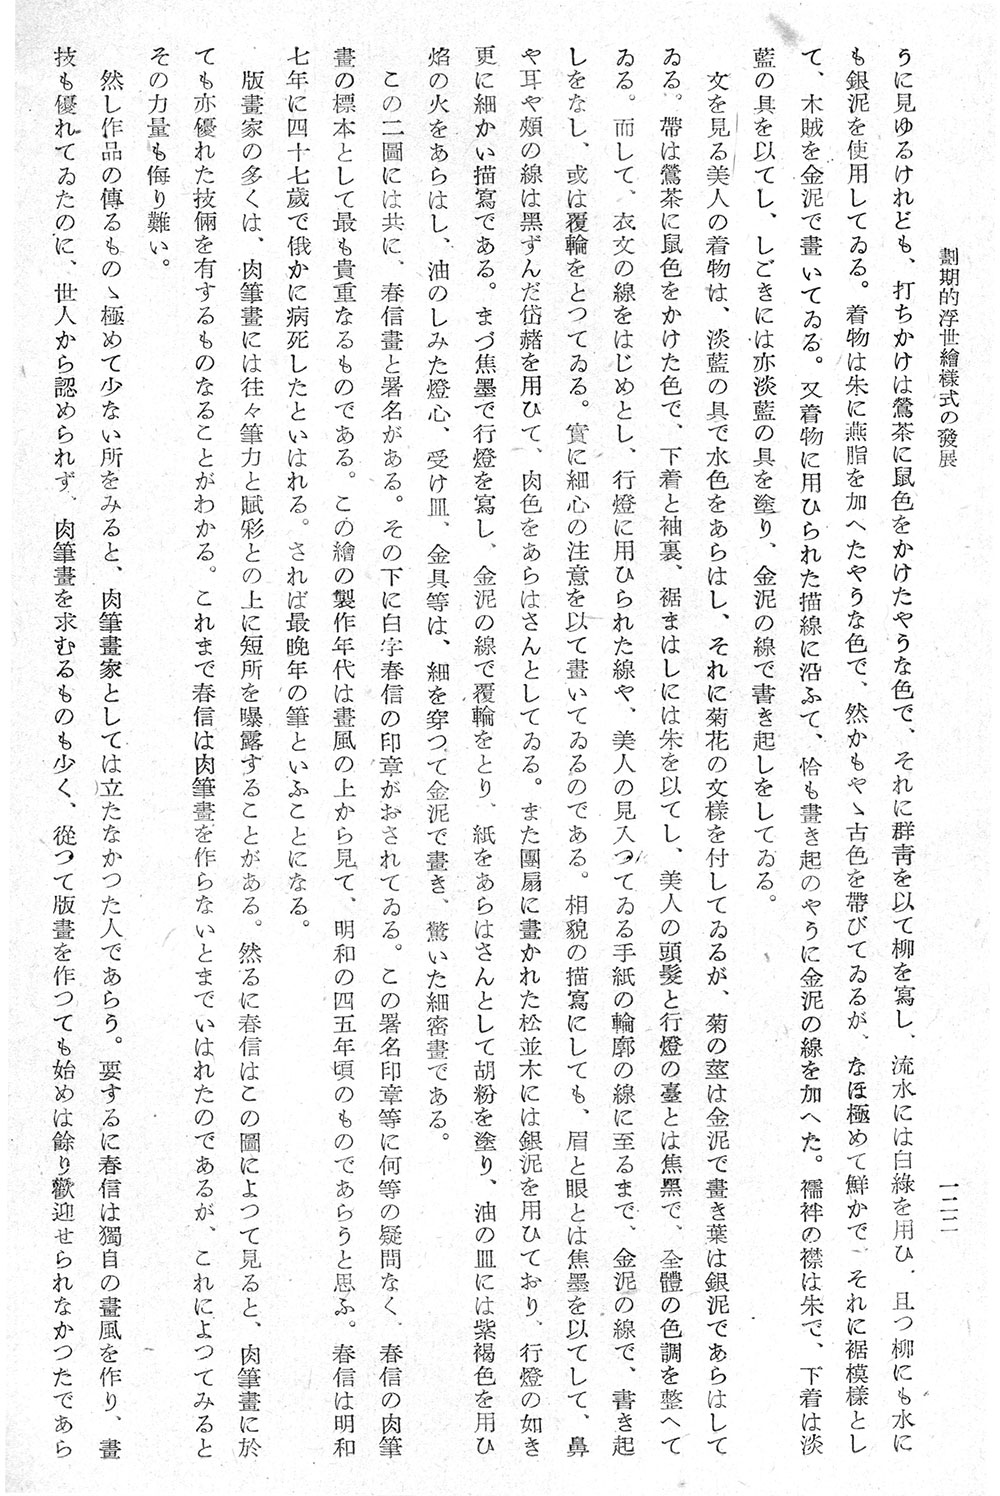 劃期的浮世繪樣式の發展
一二二
うに見ゆるけれども、打ちかけは鶯茶に鼠色をかけたやうな色で、それに群靑を以て柳を寫し、流水には白綠を用ひ、且つ柳にも水に
も銀泥を使用してゐる。着物は朱に燕脂を加へたやうな色で、然かもやゝ古色を帶びてゐるが、なほ極めて鮮かで、それに裾模樣とし
て、木賊を金泥で畫いてゐる。又着物に用ひられた描線に沿ふて、恰も書き起のやうに金泥の線を加へた。襦袢の襟は朱で、下着は淡
藍の具を以てし、しごきには亦淡藍の具を塗り、金泥の線で書き起しをしてゐる。
文を見る美人の着物は、淡藍の具で水色をあらはし、それに菊花の文樣を付してゐるが、菊の莖は金泥で畫き葉は銀泥であらはして
ゐる。帶は鶯茶に鼠色をかけた色で、下着と袖裏、裾まはしには朱を以てし、美人の頭髮と行燈の臺とは焦黑で、全體の色調を整へて
ゐる。而して、衣文の線をはじめとし、行燈に用ひられた線や、美人の見入つてゐる手紙の輪廓の線に至るまで、金泥の線で、書き起
しをなし、或は覆輪をとつてゐる。實に細心の注意を以て畫いてゐるのである。相貌の描寫にしても、眉と眼とは焦墨を以てして、鼻
や耳や頰の線は黑ずんだ岱赭を用ひて、肉色をあらはさんとしてゐる。また團扇に畫かれた松並木には銀泥を用ひており、行燈の如き
更に細かい描寫である。まづ焦墨で行燈を寫し、金泥の線で覆輪をとり、紙をあらはさんとして胡粉を塗り、油の皿には紫褐色を用ひ
焰の火をあらはし、油のしみた燈心、受け皿、金具等は、細を穿つて金泥で畫き、驚いた細密畫である。
この二圖には共に、春信畫と署名がある。その下に白字春信の印章がおされてゐる。この署名印章等に何等の疑問なく、春信の肉筆
畫の標本として最も貴重なるものである。この繪の製作年代は畫風の上から見て、明和の四五年頃のものであらうと思ふ。春信は明和
七年に四十七歲で俄かに病死したといはれる。されば最晩年の筆といふことになる。
版畫家の多くは、肉筆畫には往々筆力と賦彩との上に短所を曝露することがある。然るに春信はこの圖によつて見ると、肉筆畫に於
ても亦優れた技倆を有するものなることがわかる。これまで春信は肉筆畫を作らないとまでいはれたのであるが、これによつてみると
その力量も侮り難い。
然し作品の傳るものゝ極めて少ない所をみると、肉筆畫家としては立たなかつた人であらう。要するに春信は獨自の畫風を作り、畫
技も優れてゐたのに、世人から認められず、肉筆畫を求むるものも少く、從つて版畫を作つても始めは餘り歡迎せられなかつたであら